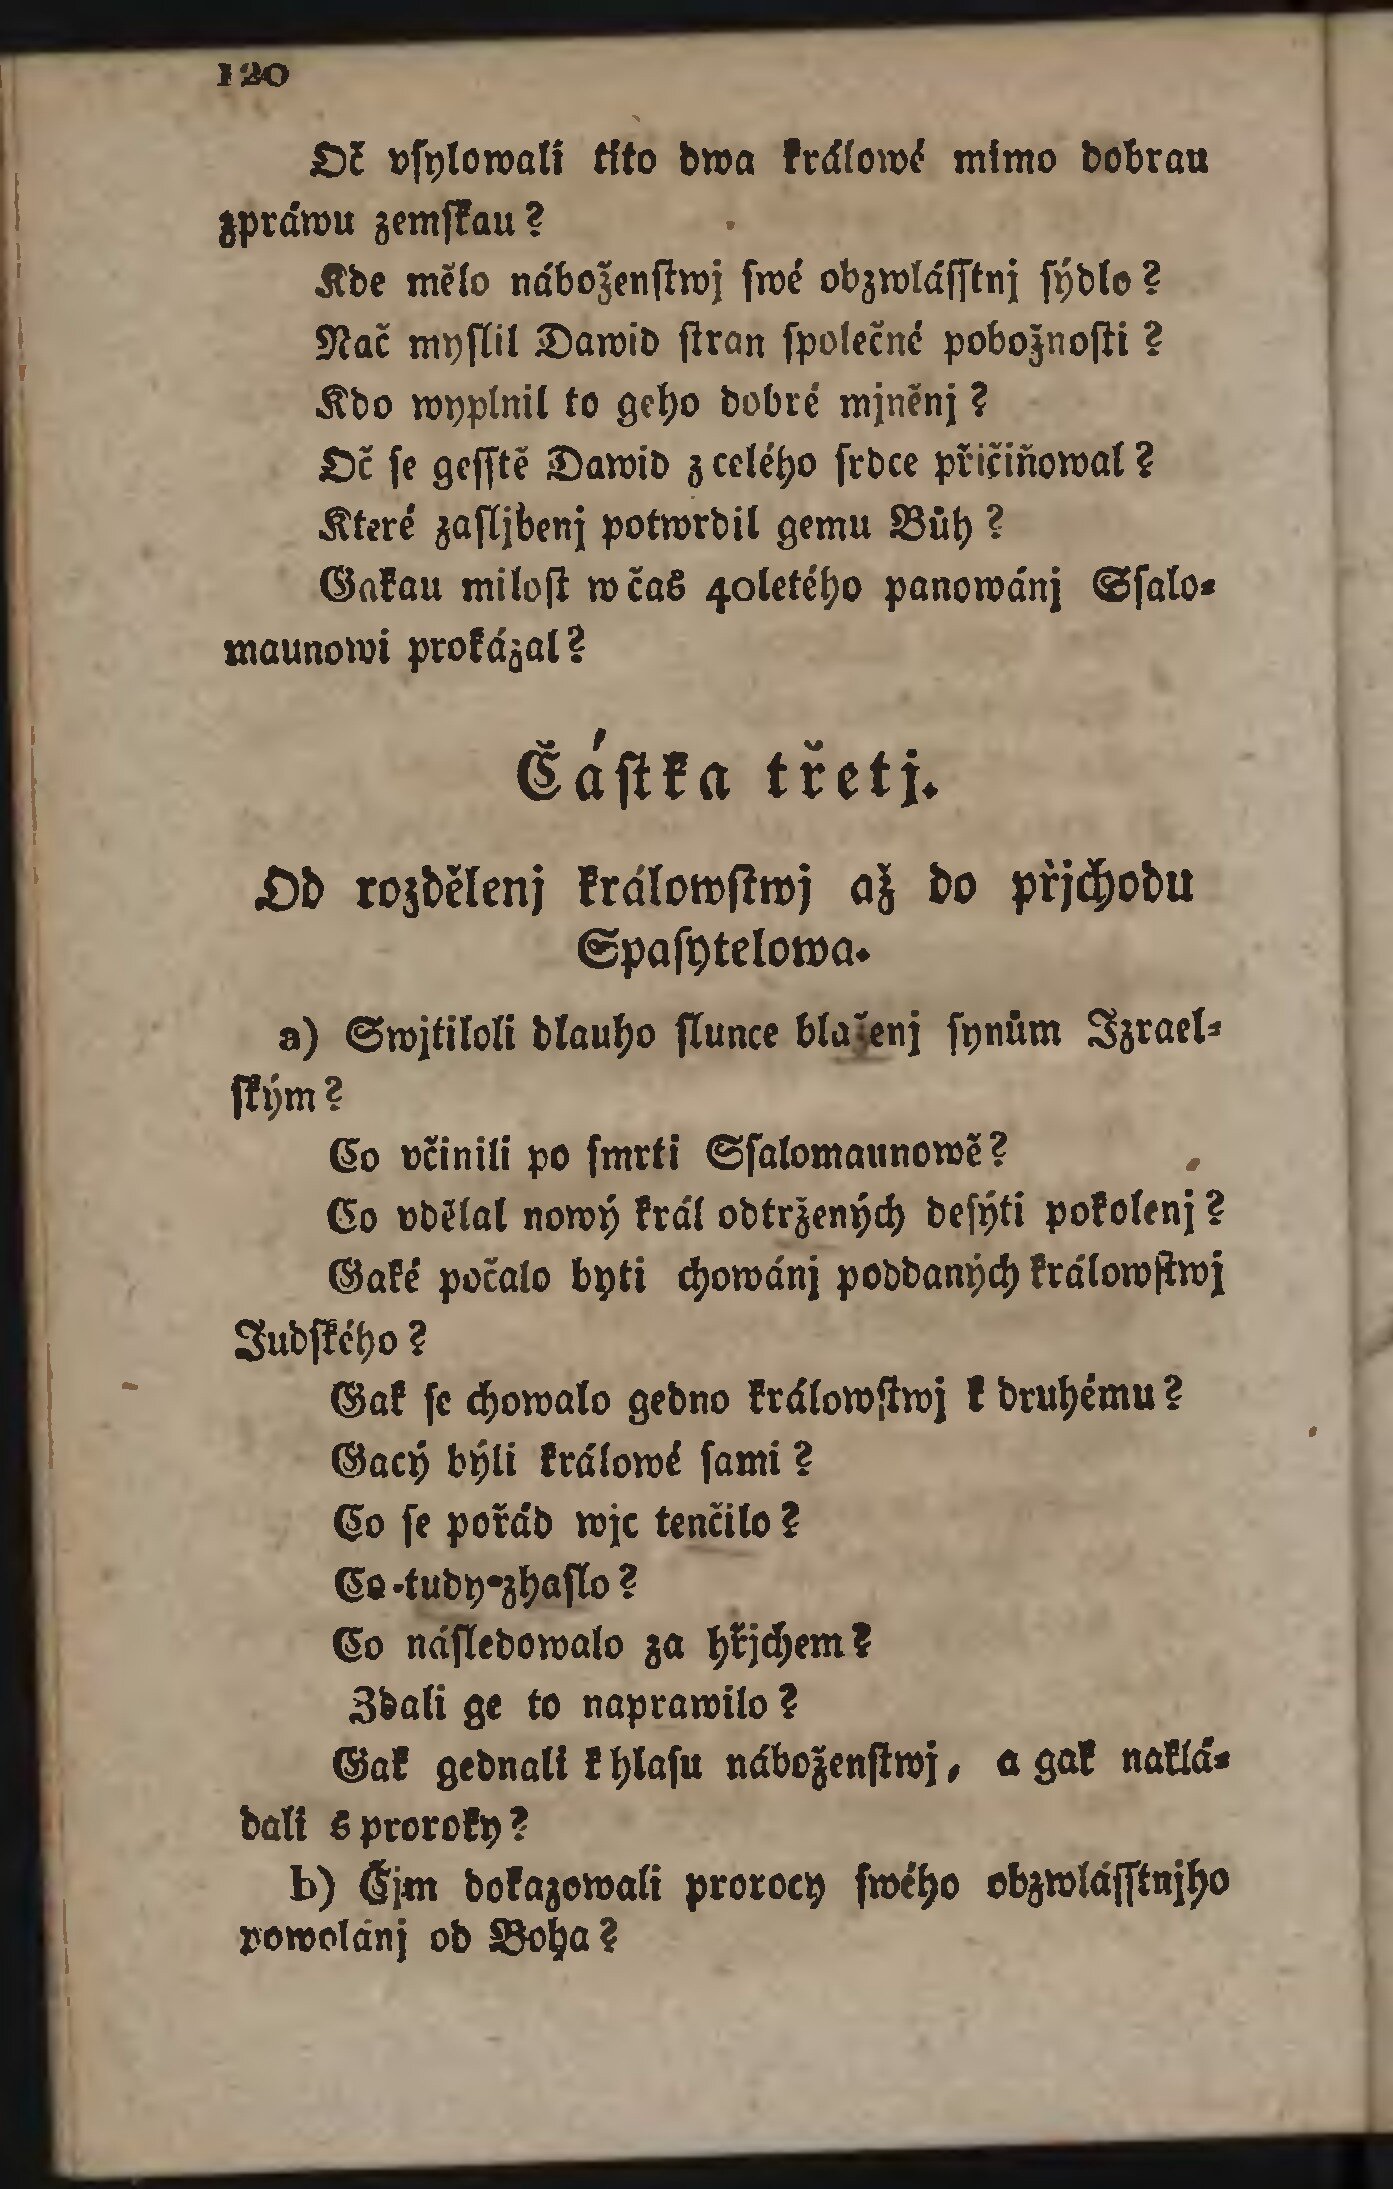 120
Oč vſylowali tito dwa králowé mimo dobrau
zpráwu zemſkau?
Kde mělo náboženſtwj ſwé obzwláſſtnj ſýdlo?
Nač myſlil Dawid ſtran ſpolečné pobožnoſti?
Kdo wyplnil to geho dobré mjněnj?
Oč ſe geſſtě Dawid z celého ſrdce přičiňowal?
Které zaſljbenj potwrdil gemu Bůh?
Gakau miloſt w čas 40letého panowánj Sſalo-
maunowi prokázal?
Částka třetj.
Od rozdělenj králowſtwj až do přjchodu
Spaſytelowa.
a) Swjtiloli dlauho ſlunce blaženj ſynům Izrael-
ſkým?
Co včinili po ſmrti Sſalomaunowě?
Co vdělal nowý král odtržených deſýti pokolenj?
Gaké počalo byti chowánj poddaných králowſtwj
Judſkého?
Gak ſe chowalo gedno králowſtwj k druhému?
Gacý býli králowé ſami?
Co ſe pořád wjc tenčilo?
Co tudy zhaſlo?
Co náſledowalo za hřjchem?
Zdali ge to naprawilo?
Gak gednali k hlaſu náboženſtwj, a gak naklá-
dali s proroky?
b) Čjm dokazowali prorocy ſwého obzwláſſtnjho
powolánj od Boha?